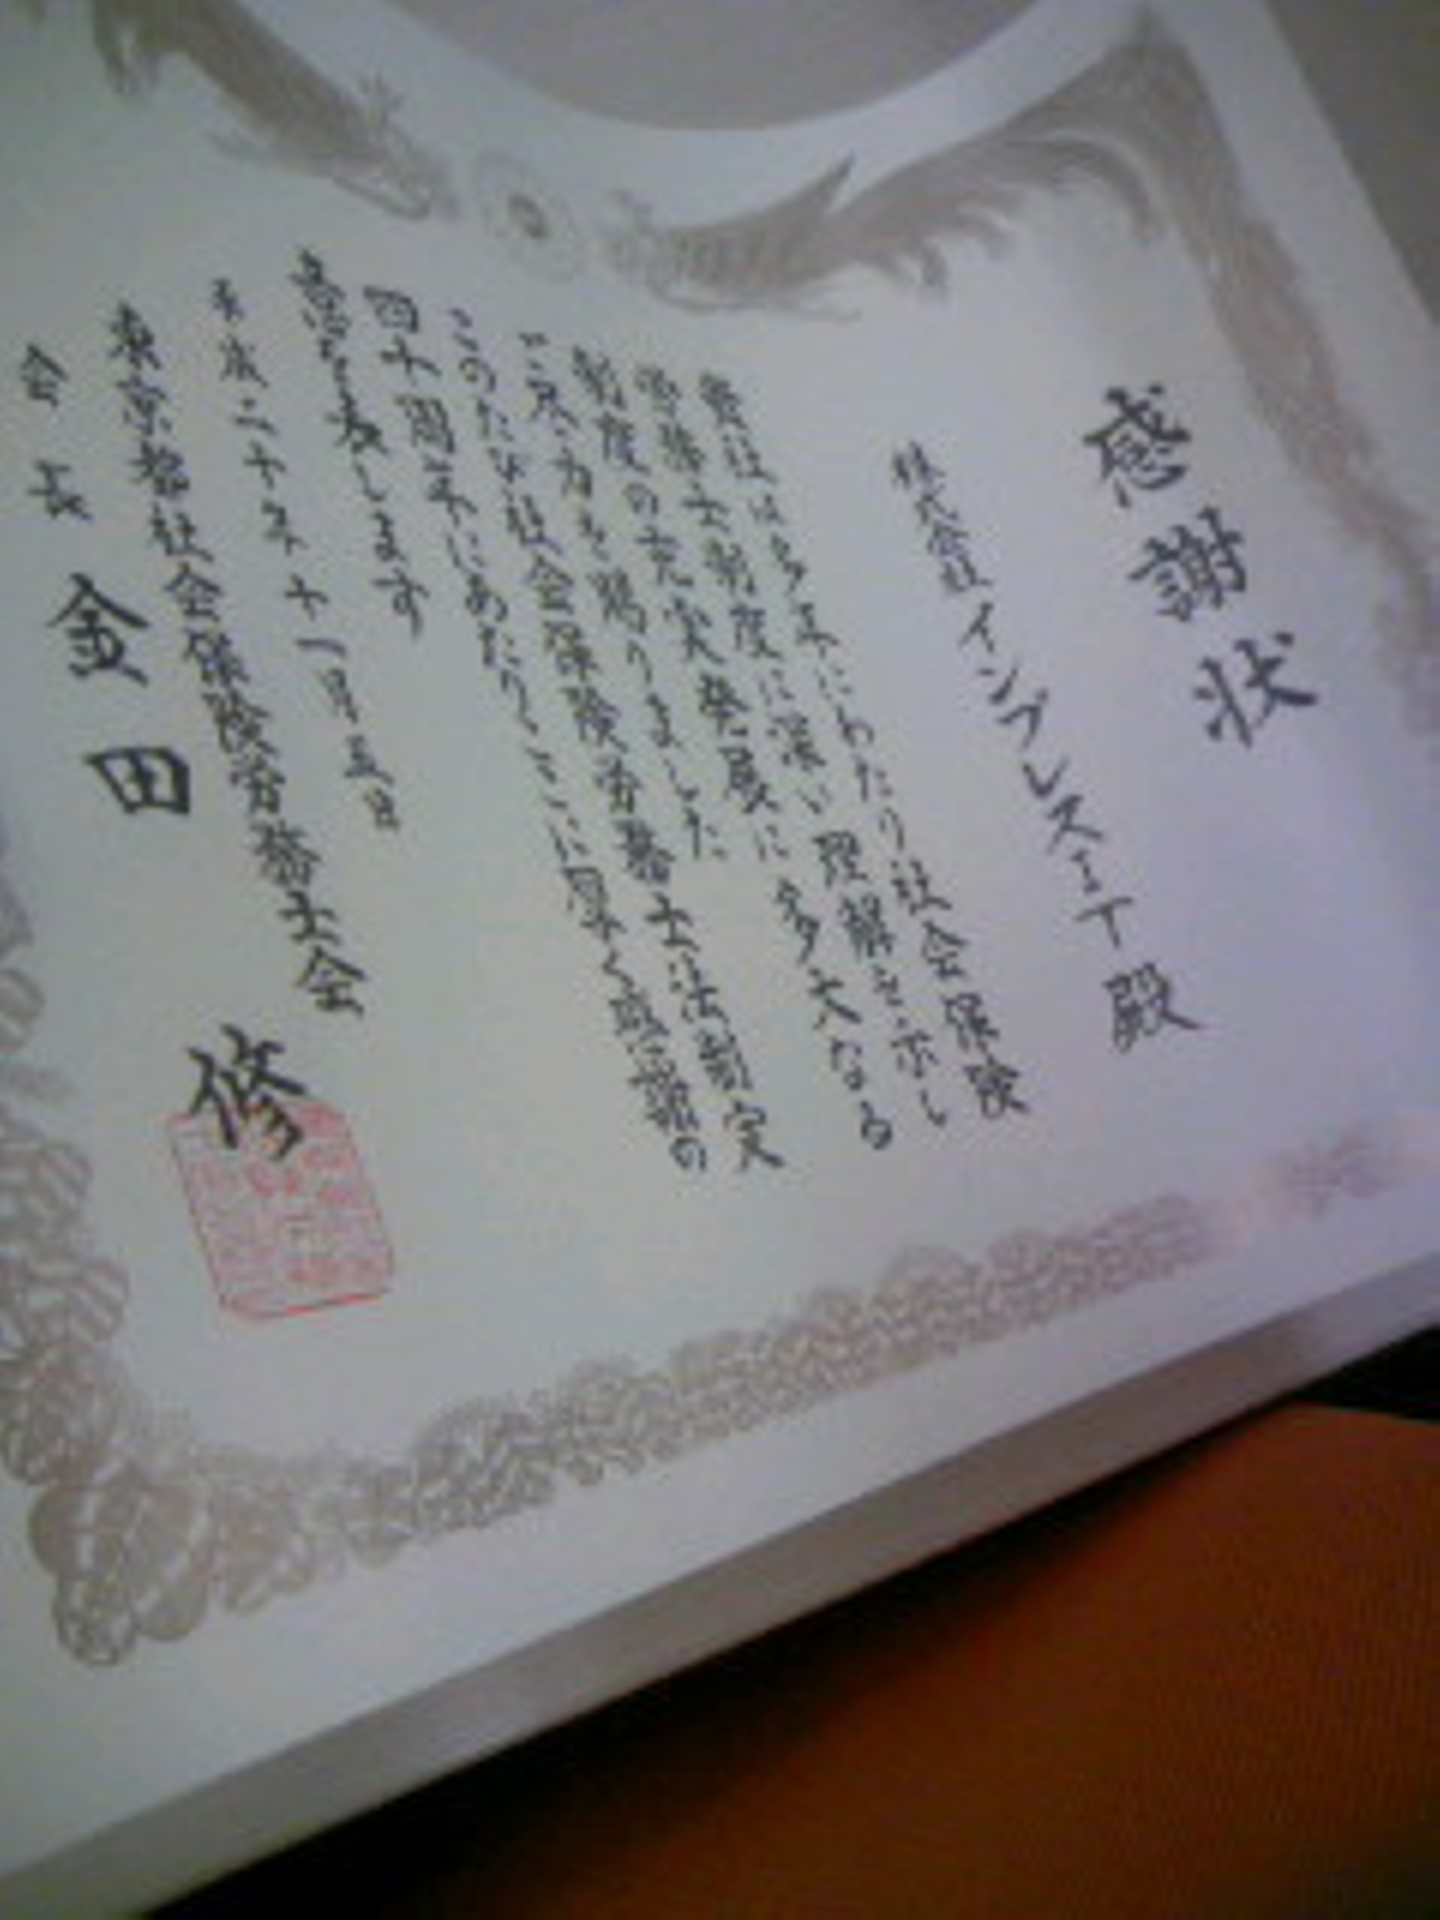 感謝状
株式会社インプレスIT 殿
貴社は多年にわたり社会保険
労務士制度に深い理解を示し
制度の充実発展に多大なる
ご尽力を賜りました
このたび社会保険労務士法制定
四十周年にあたりここに厚く感謝の
意を表します
平成二十年十一月五日
東京都社会保険労務士会
会長 金田 修